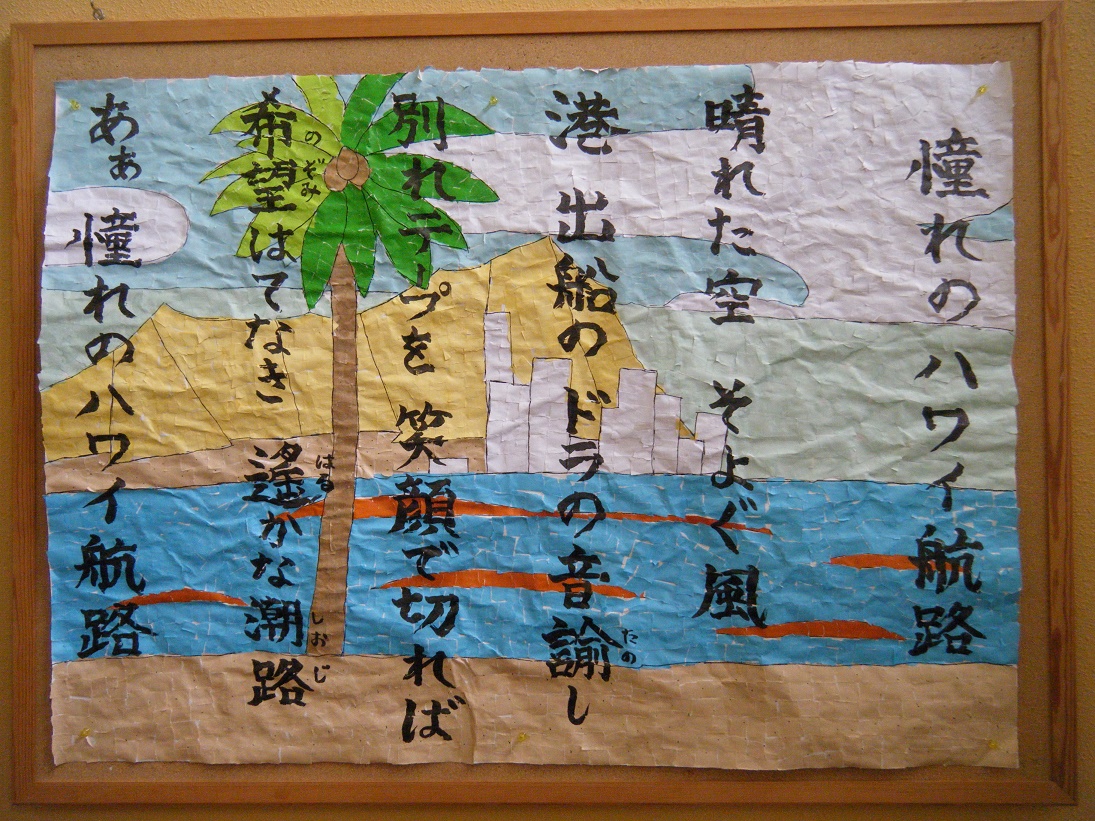 憧れのハワイ航路
晴れた空 そよぐ風
港 出船のドラの音諭し
たの
別れテープを 笑顔で切れば
希望はてなき 遥かな潮路
のぞみ
はる
しおじ
あぁ 憧れのハワイ航路